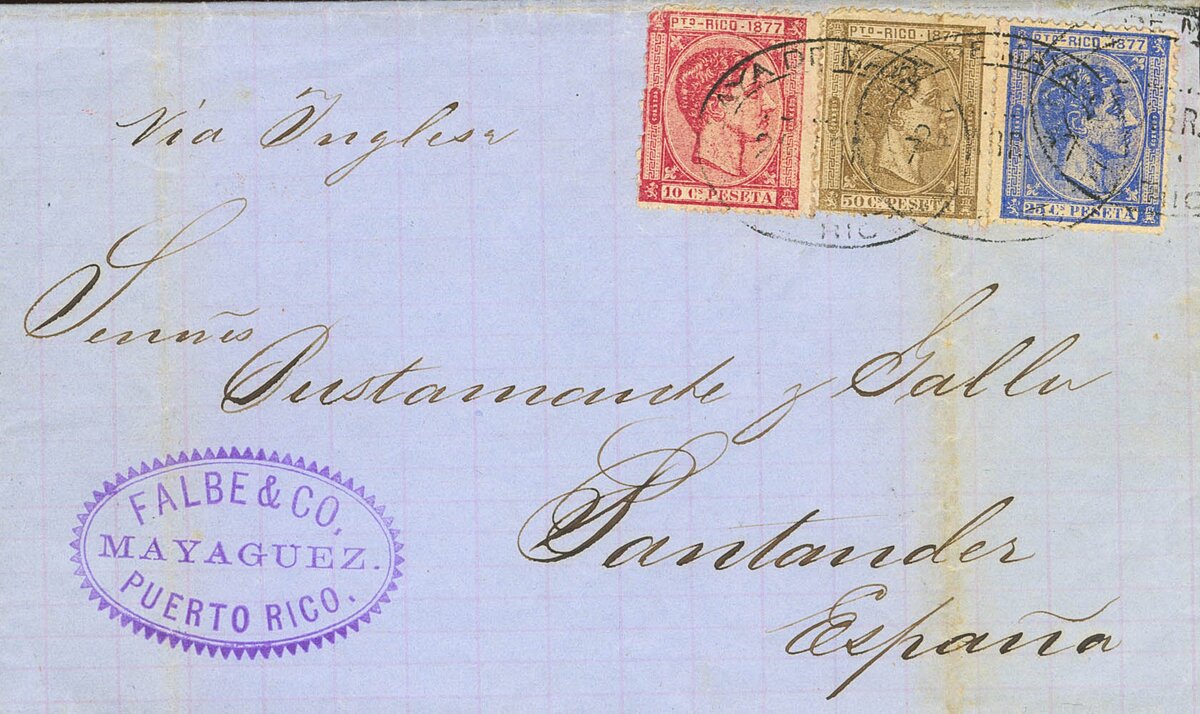 PTO-RICO·1877
10 CS PESETA
PTO-RICO·1877
50 CS PESETA
PTO-RICO·1877
25 CS PESETA
Via Inglesa
Bustamante y Gallo
Santander
España
FALBE & CO,
MAYAGUEZ.
PUERTO RICO.